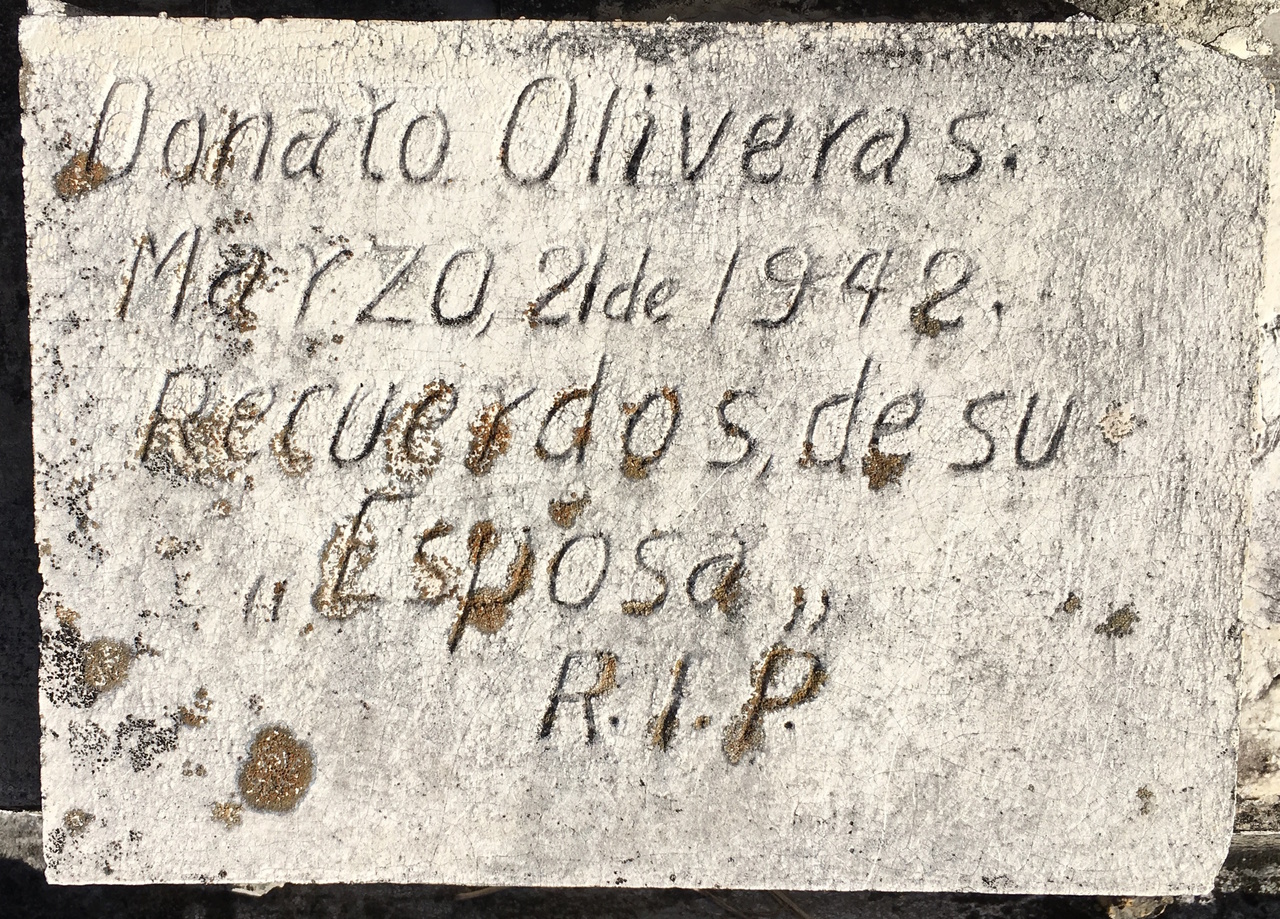 Donato Oliveras.
Marzo, 21 de 1942.
Recuerdos, de su
„Esposa„
R.I.P.